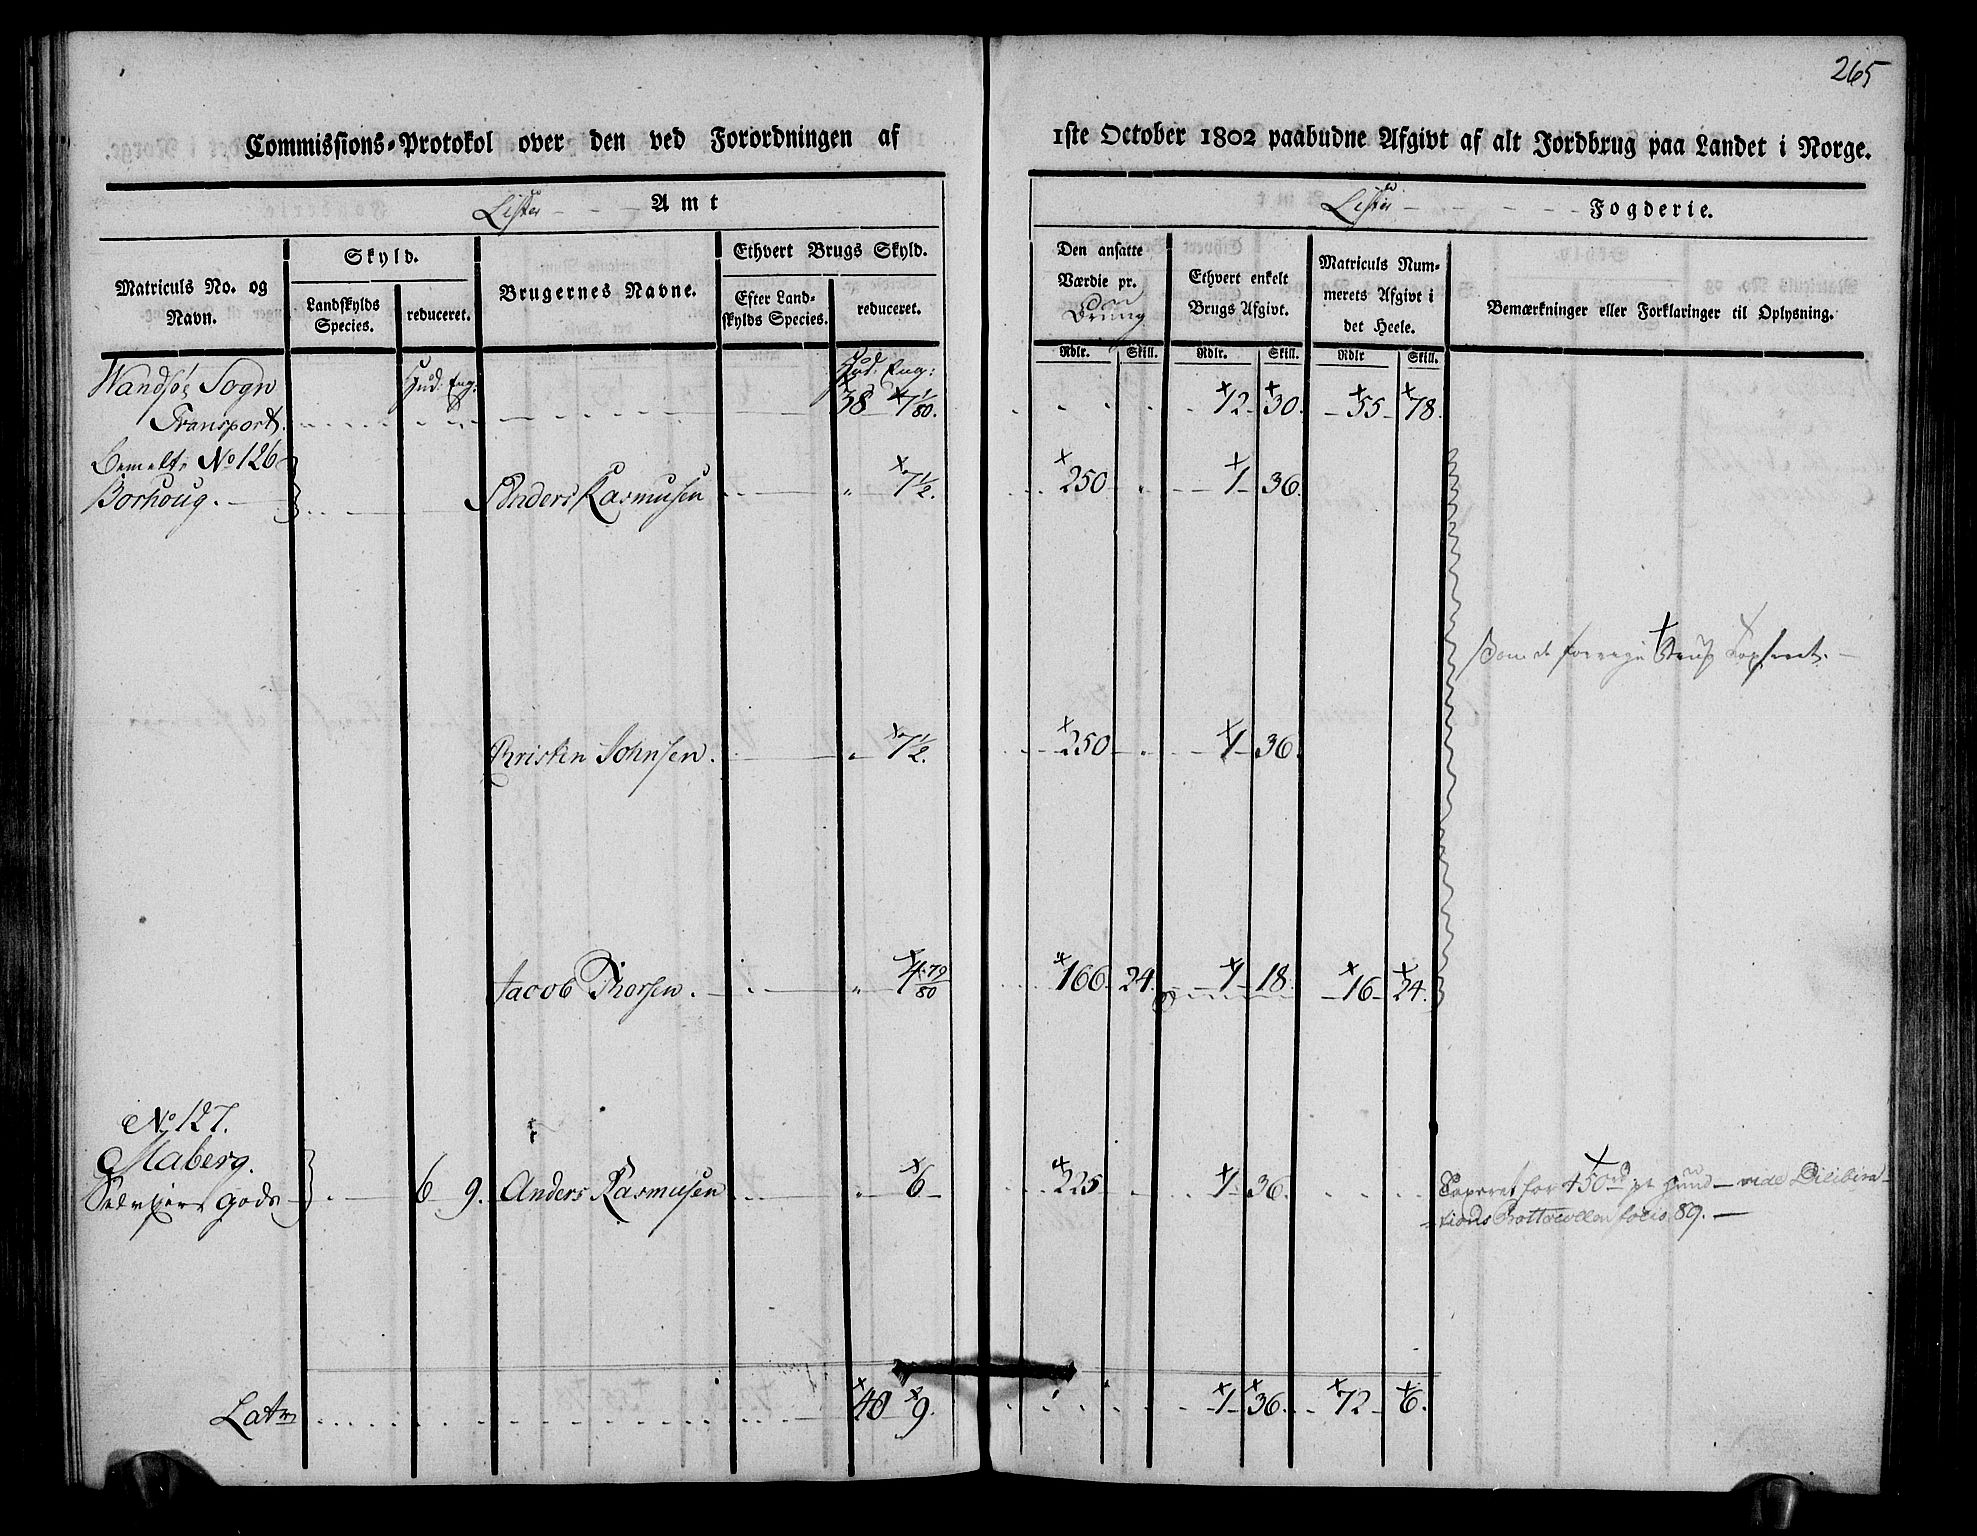 265
Commissions-Protokol over den ved Forordningen af 1ste October 1802 paabudne Afgivt af alt Jordbrug paa Landet i Norge.
Lister Amt
Lister Fogderie.
Matriculs No. og Navn.
Skyld.
Landskylds Species.
reduceret.
Brugernes Navne.
Ethvert Brugs Skyld.
Efter Landskylds Species.
reduceret.
Den ansatte Værdie pr.
Rdlr. Skill.
Ethvert enkelt Brugs Afgivt.
Rdlr. Skill.
Matriculs Nummerets Afgivt i det Heele.
Rdlr Skill.
Bemærkninger eller Forklaringer til Oplysning.
Wandsøe Sogn
Hud. Eng: Hud. Eng:
Transport. 38 7 1/80. 12 30. 55 78.
Bemelte No 126
Borhoug. Anders Rasmusen " 7 1/2. 250 " 1 36.
Christen Johnsen. " 7 1/2. 250 " 1 36.
Jacob Thorsen. " 4 79/80 166 24. 1 18. 16 24.
No 127.
Maberg.
Selveiergods 6 9. Anders Rasmusen " 6 225 1 36.
Taxeret for 450 rd pr Hud vide Delibera-
tions Prottocollen folio 89.
Latus 40 9. 1 36. 72 6.